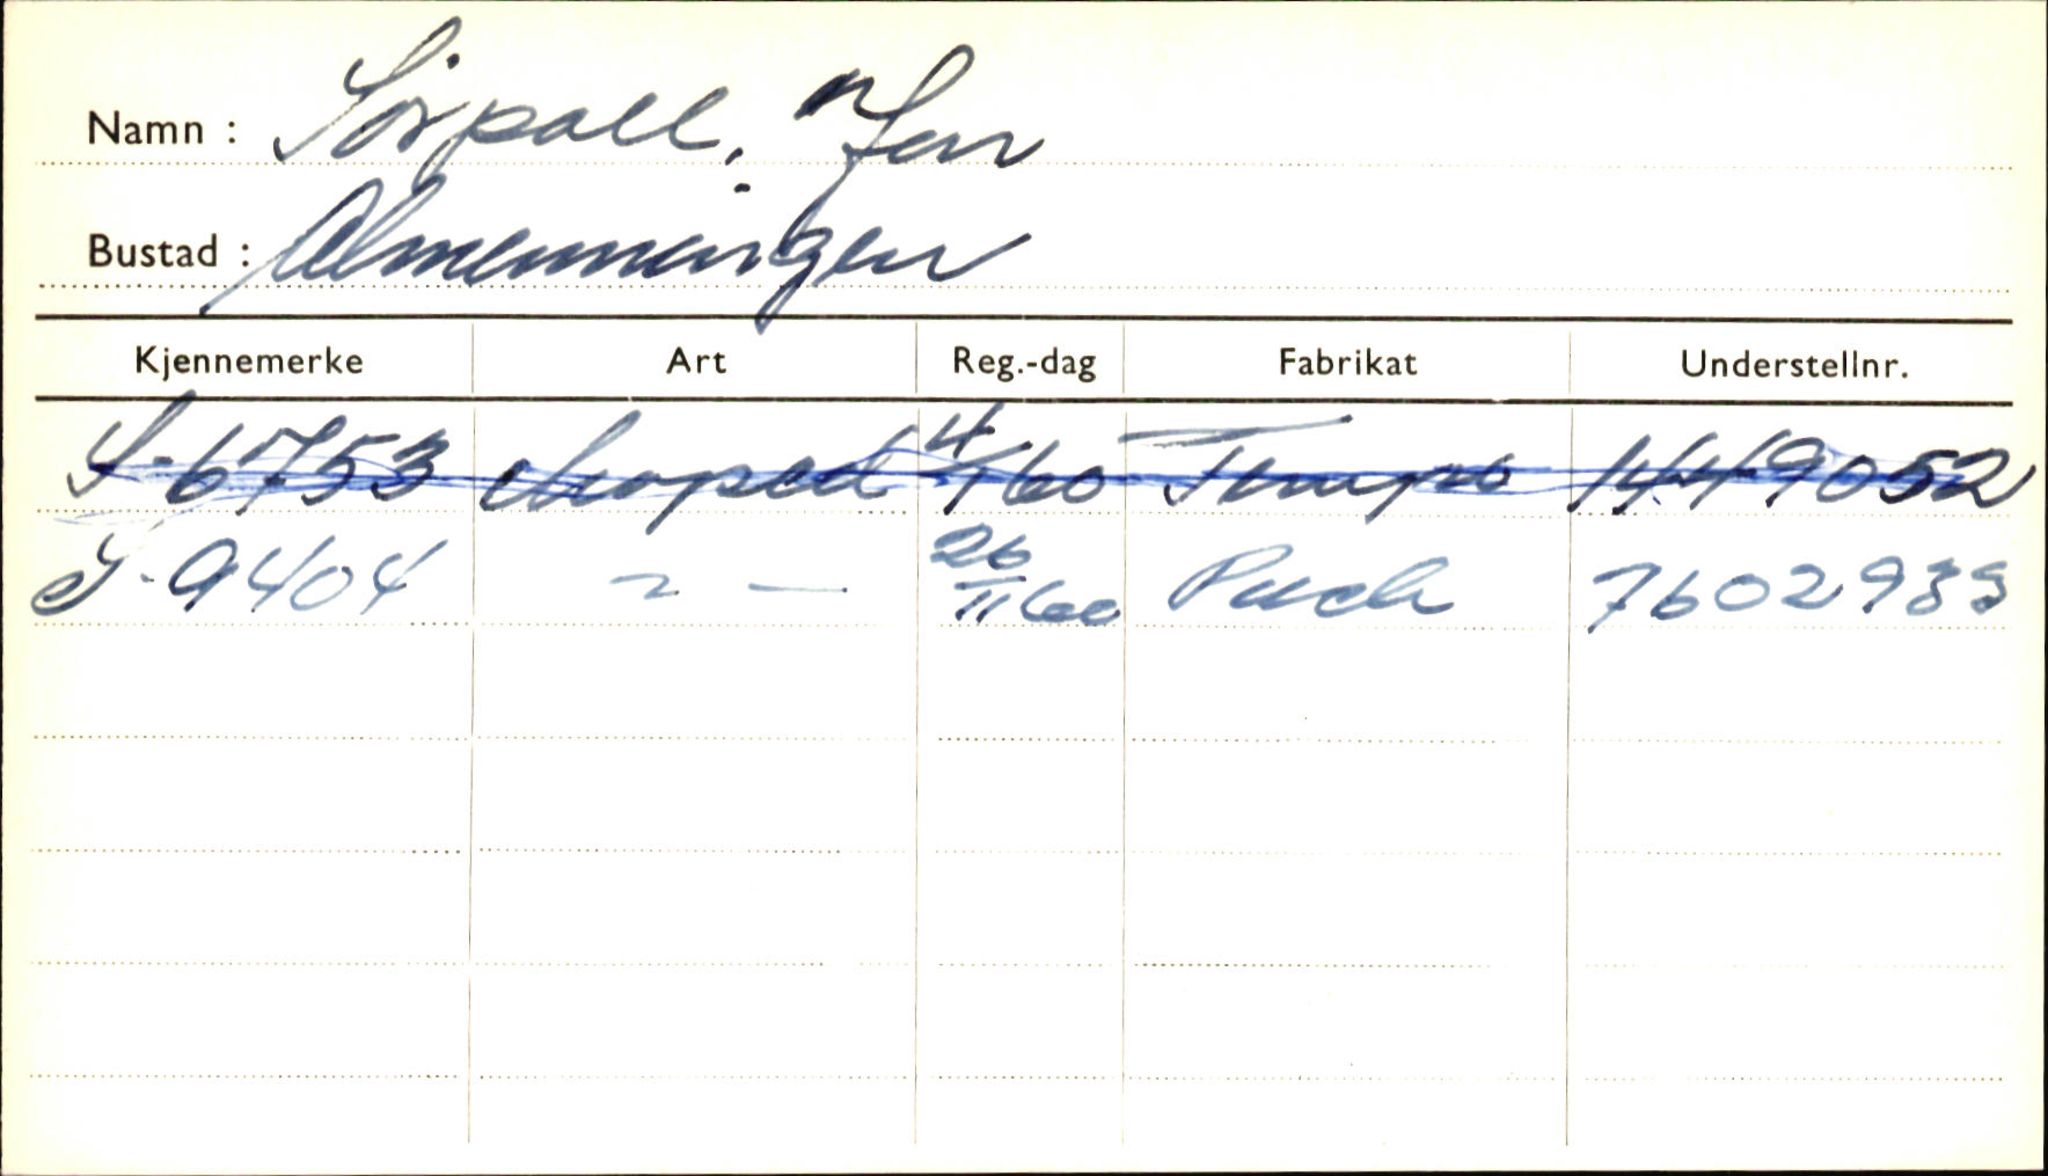 Namn : Sörpoll, Jon
Bustad : Almenningen
Kjennemerke Art Reg.-dag Fabrikat Understellnr.
S-6753 Moped 4/1 60 Tempo 1449052
S-9404 " — 26/11 60 Puch 7602939